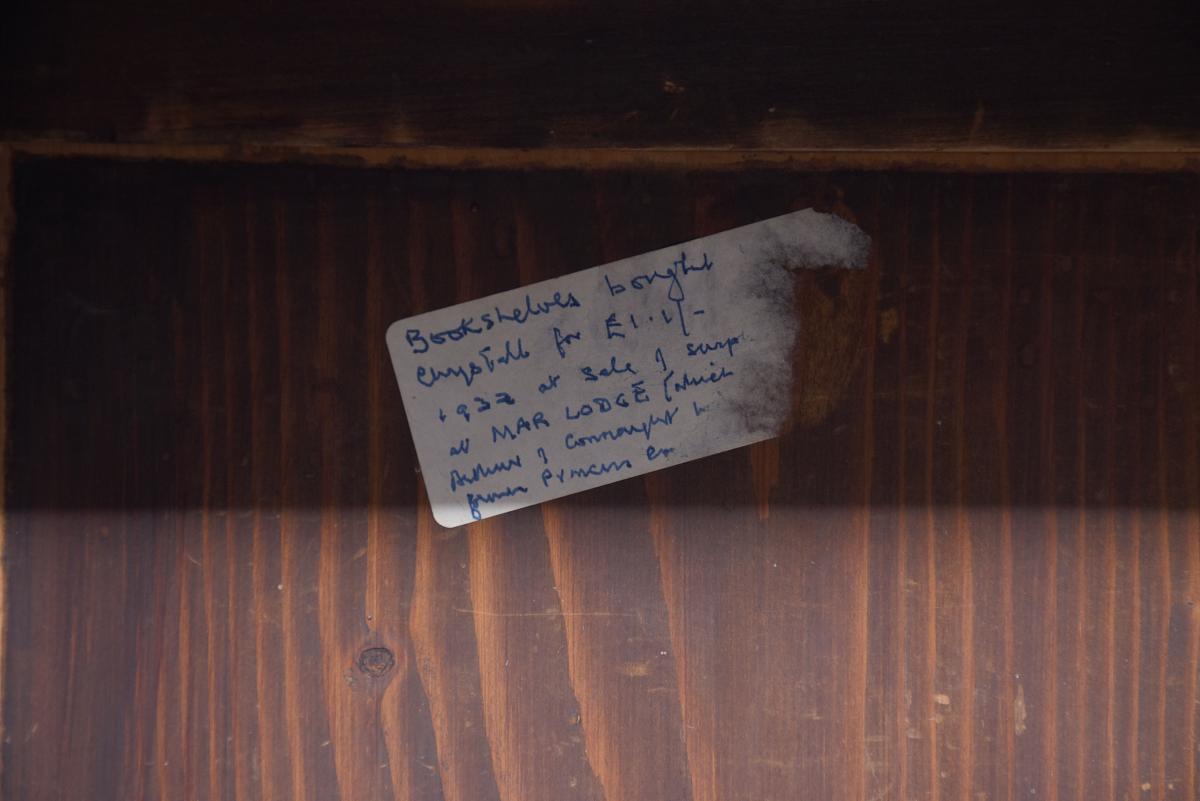 Bookshelves bought
Chrystall for £1.1/-
1932 at Sale of surp
at MAR LODGE (which
Arthur of Connaught
from Princess